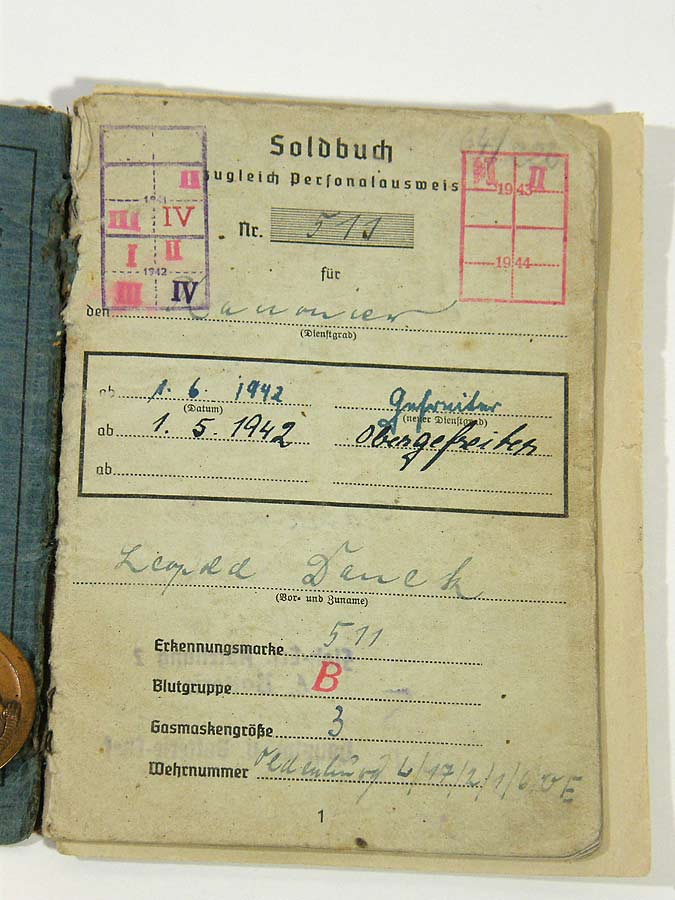 Soldbuch
zugleich Personalausweis
II
1941
III IV
I II
1942
III IV
VI II
1943
1944
Nr. 511
für
den Kanonier
(Dienstgrad)
ab 1. 6. 1942 Gefreiter
(Datum) (neuer Dienstgrad)
ab 1. 5. 1942 Obergefreiter
ab
Leopold Danek
(Vor- und Zuname)
Erkennungsmarke 511
Blutgruppe B
Gasmaskengröße 3
Wehrnummer Oldenburg
1